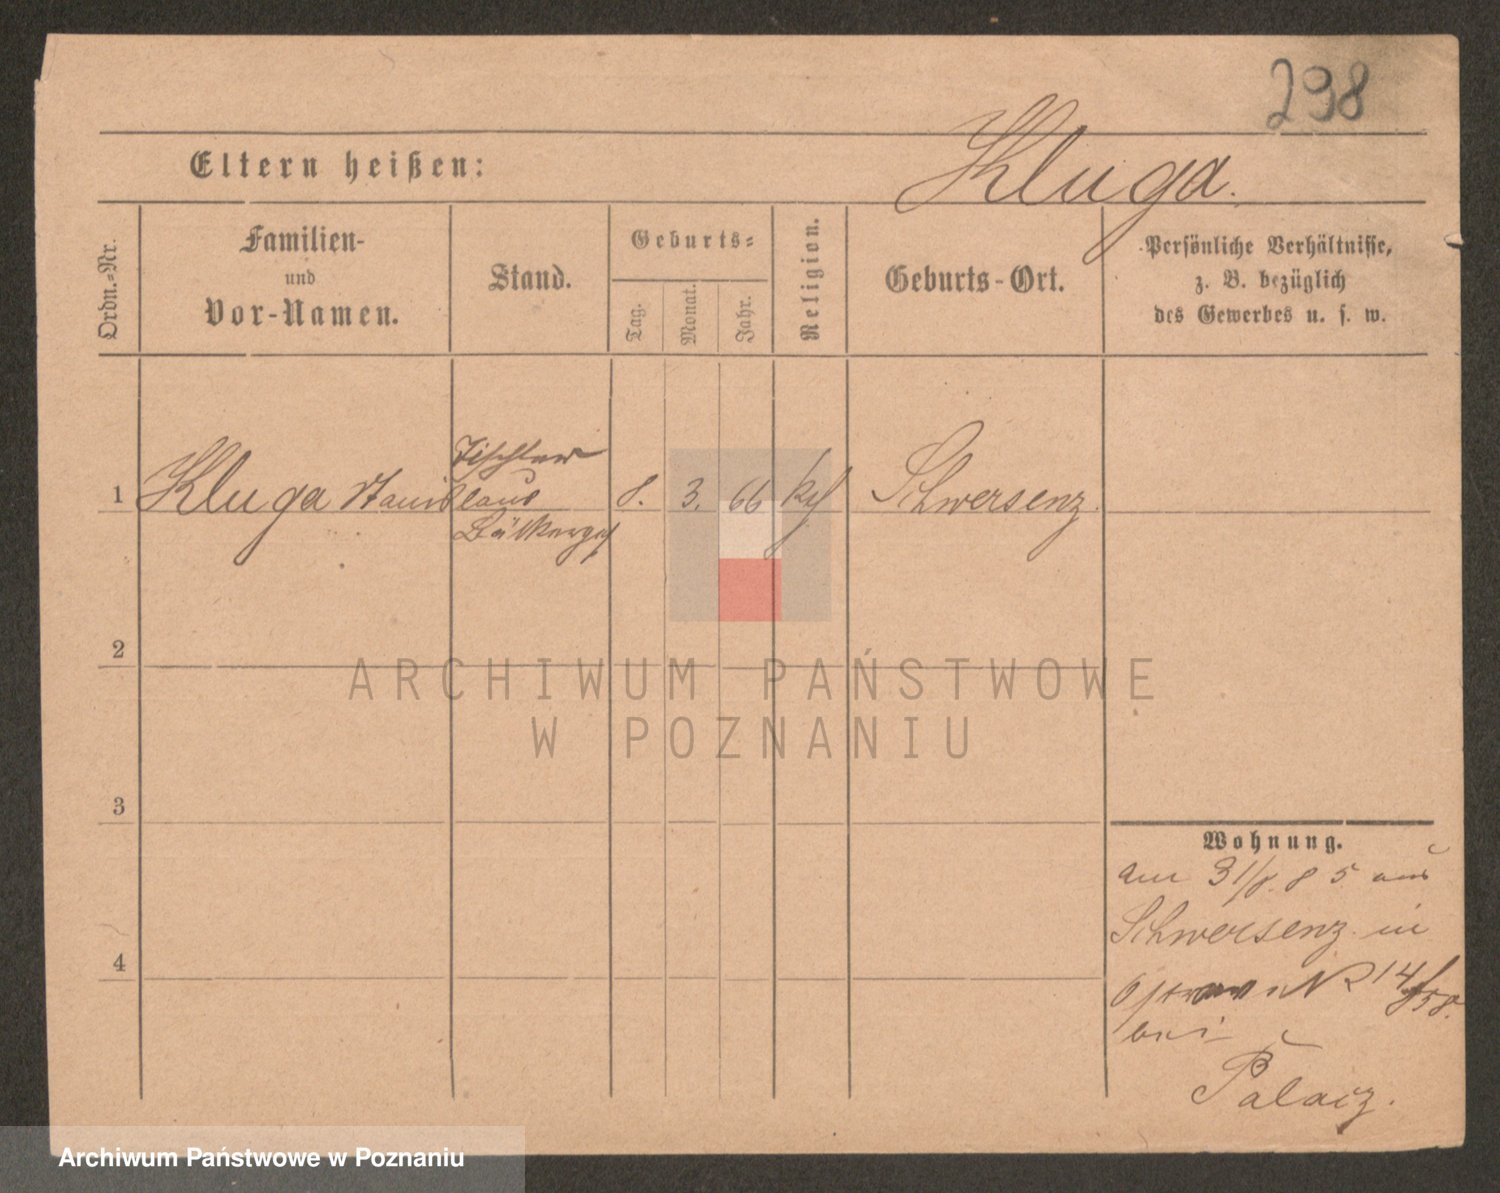 298
Eltern heißen:
Kluga.
Ordn.-Nr.
Familien-
und
Vor-Namen.
Stand.
Geburts-
Tag.
Monat.
Jahr.
Religion.
Geburts-Ort.
Persönliche Verhältnisse,
z. B. bezüglich
des Gewerbes u. s. w.
Tischler
1 Kluga Stanislaus 8. 3. 66 kth Schwersenz.
Bäckerges
2
ARCHIWUM PAŃSTWOWE
W POZNANIU
3
Wohnung.
am 31/8. 85 aus
Schwersenz in
4
Ostrowo N 14/58.
bei
Palacz.
Archiwum Państwowe w Poznaniu